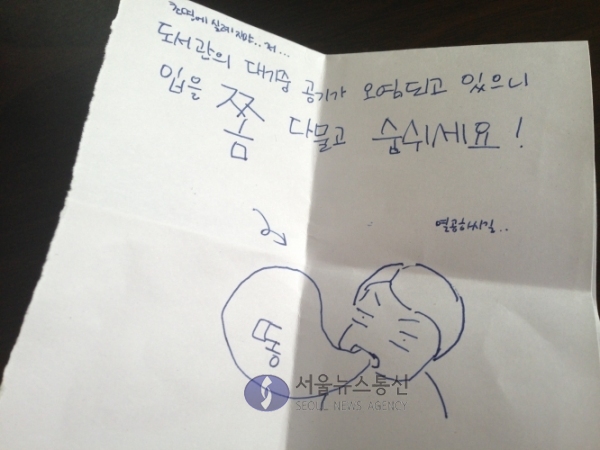 초면에 실례지만.. 저...
도서관의 대기중 공기가 오염되고 있으니
입을 쫌 다물고 숨쉬세요!
열공하시길..
똥
서울뉴스통신
SEOUL NEWS AGENCY